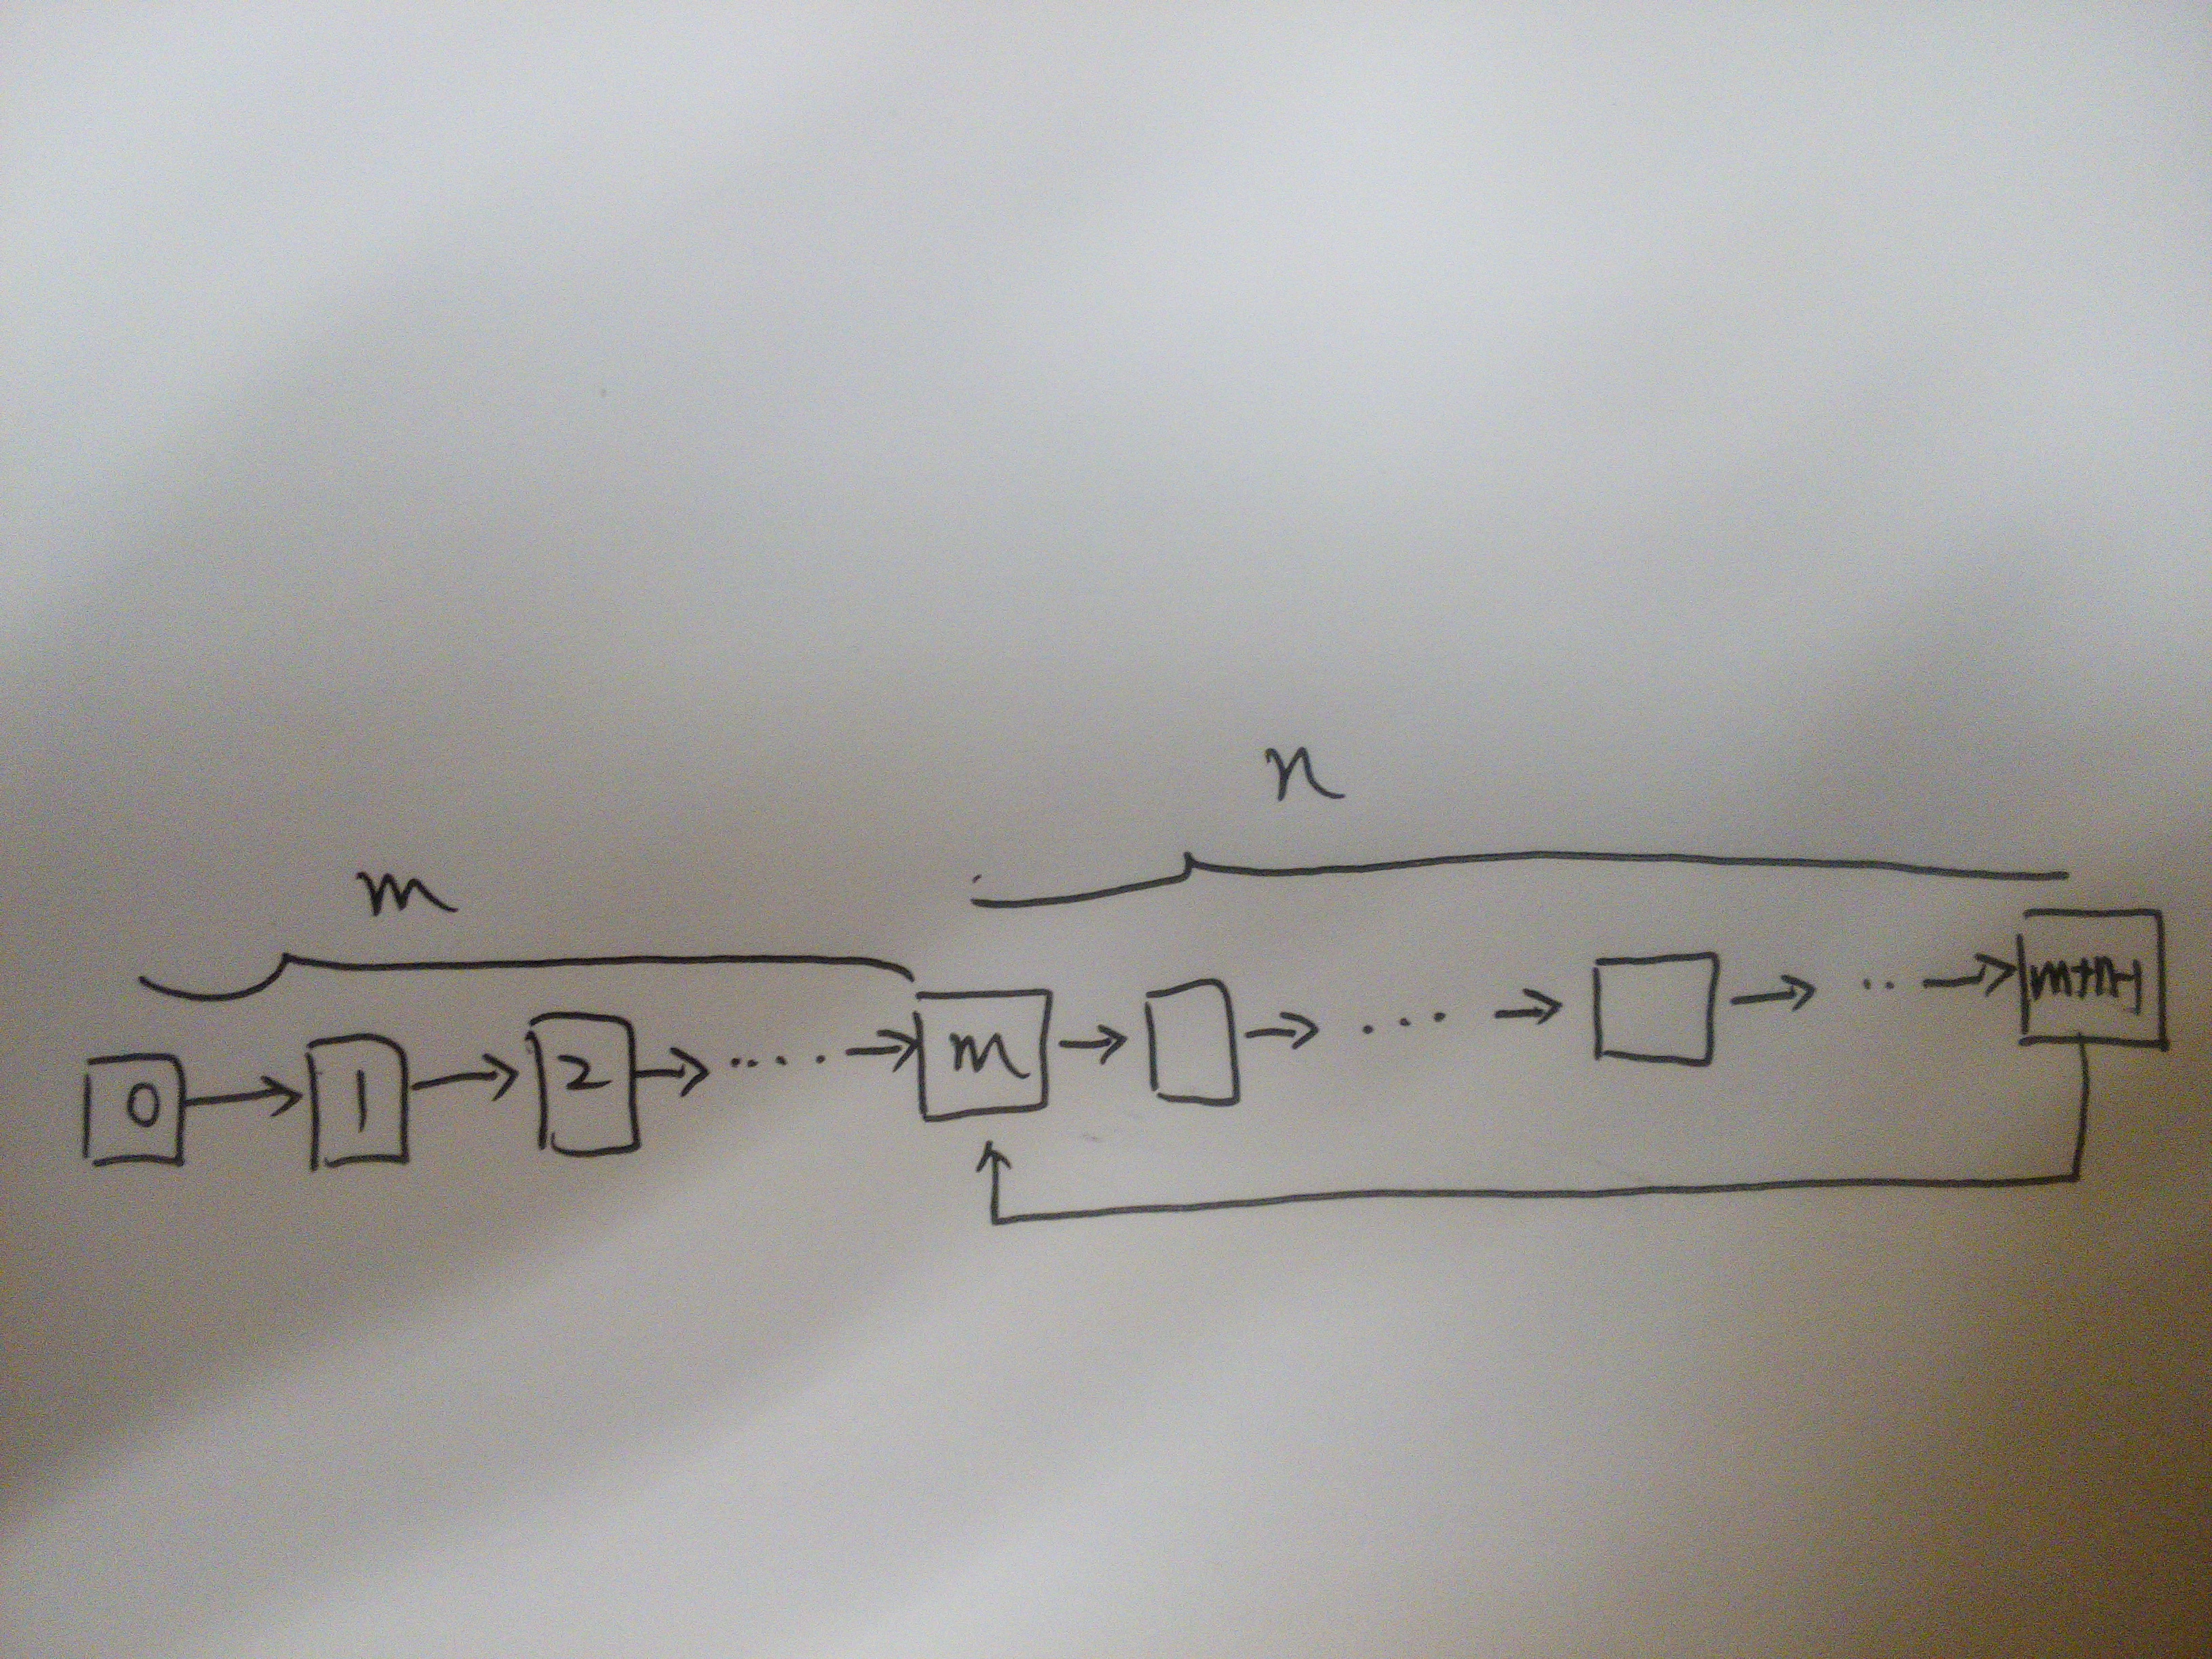 n
m
0 → 1 → 2 → .... → m → → ... → → .. → m+n-1